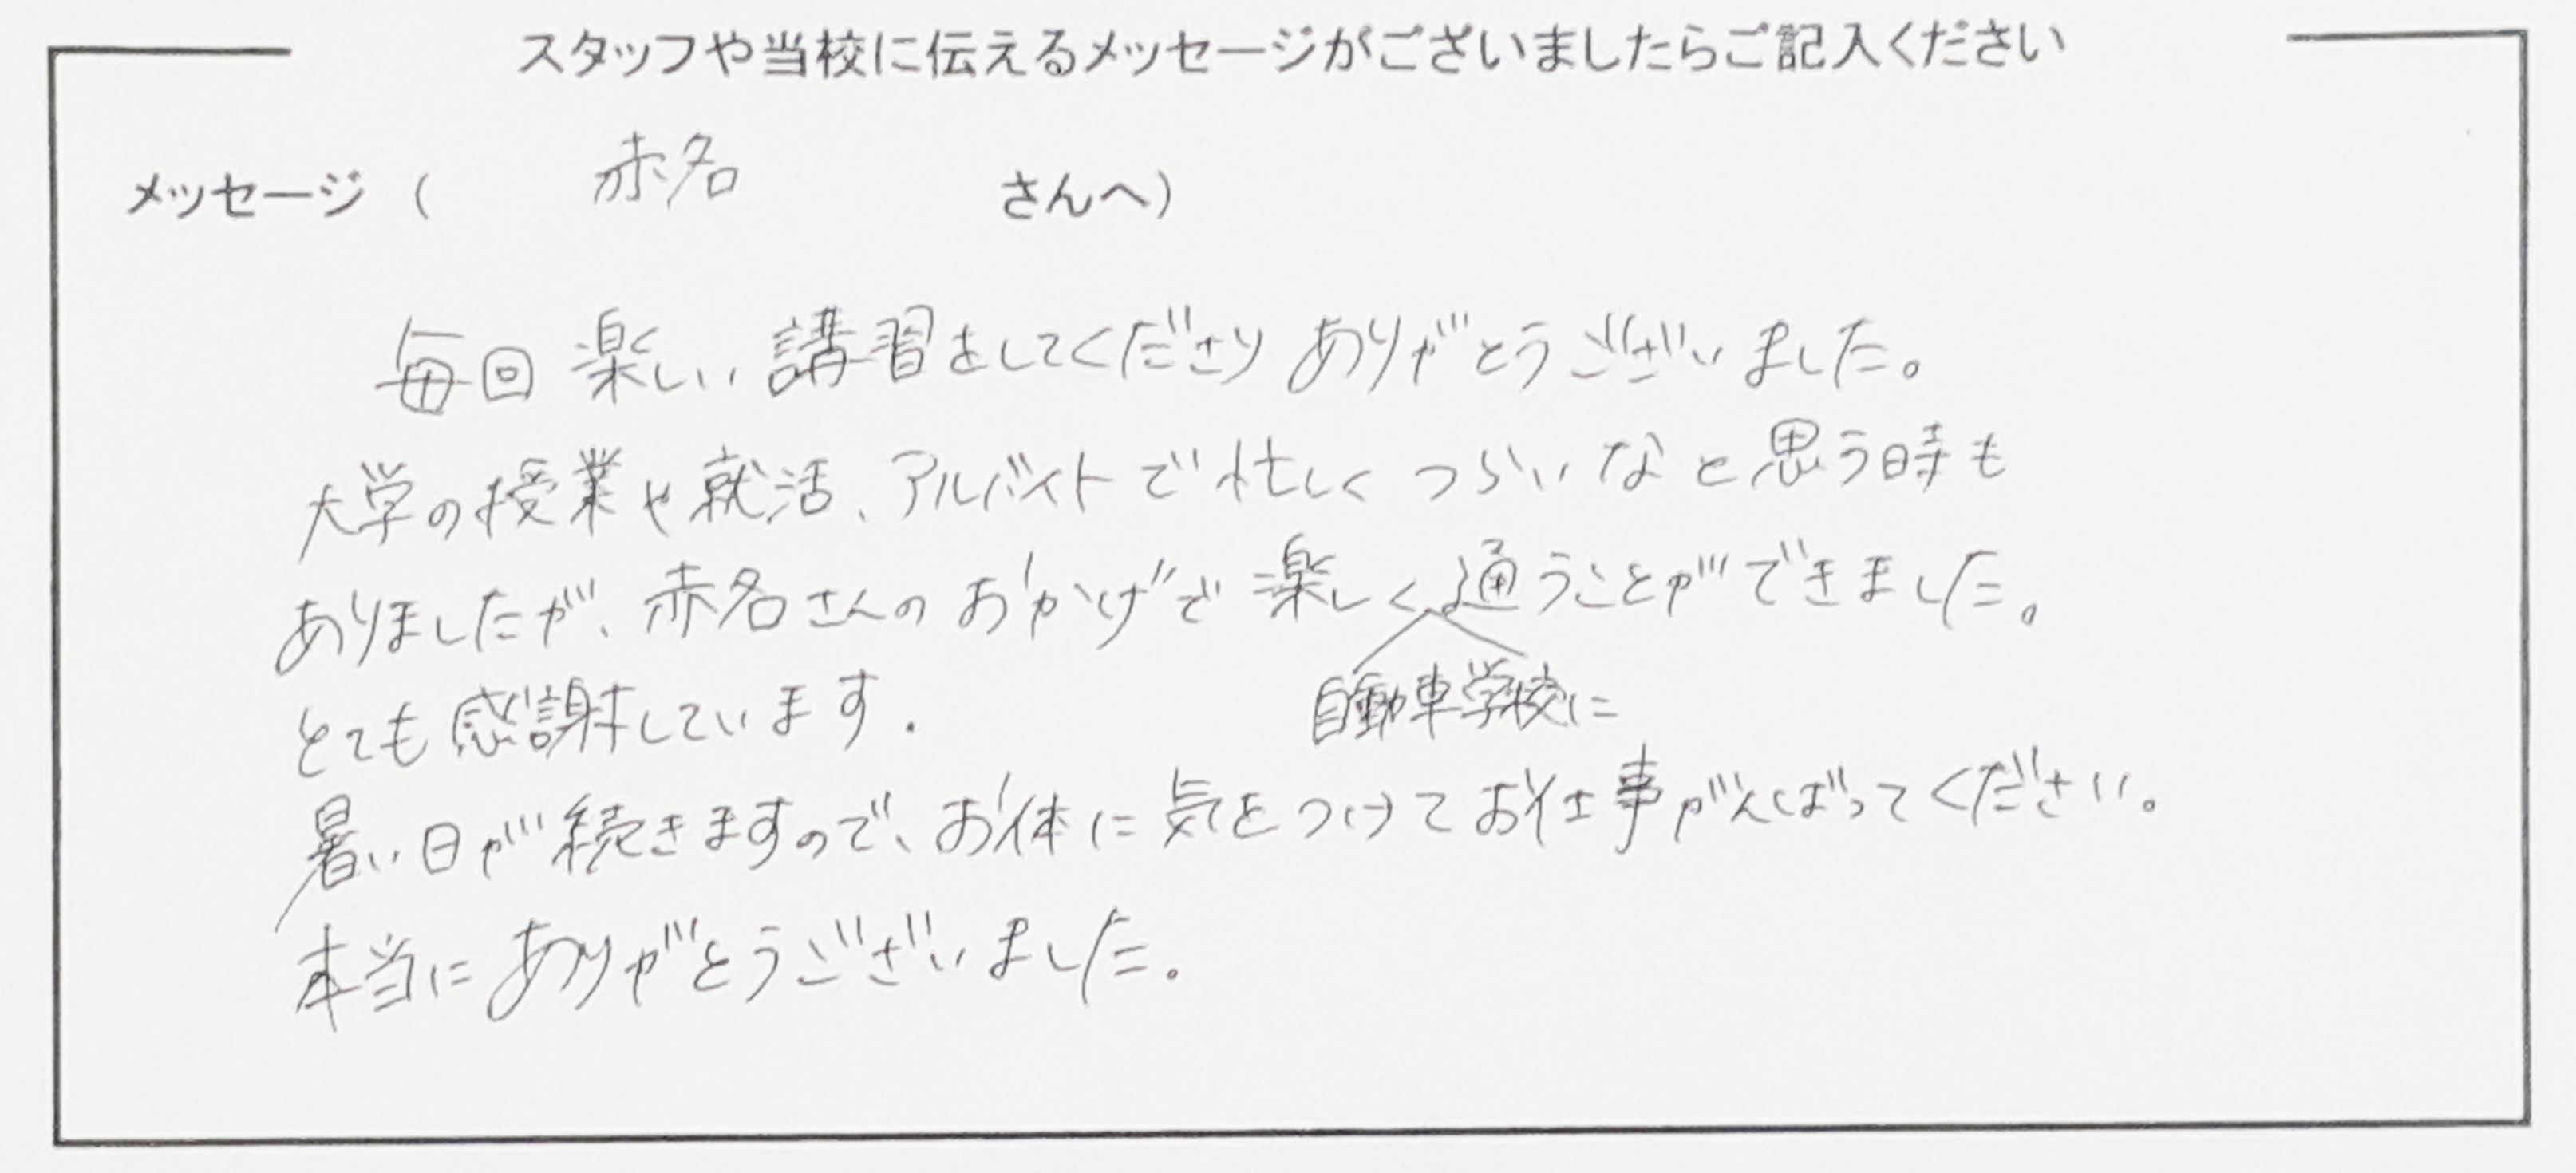 スタッフや当校に伝えるメッセージがございましたらご記入ください
メッセージ（ 赤名 さんへ）
毎回 楽しい 講習をしてくださり ありがとうございました。
大学の授業や就活、アルバイトで忙しく つらいなと思う時も
ありましたが、赤名さんのおかげで楽しく通うことができました。
自動車学校に
とても感謝しています.
暑い日が続きますので、お体に気をつけてお仕事がんばってください。
本当にありがとうございました。